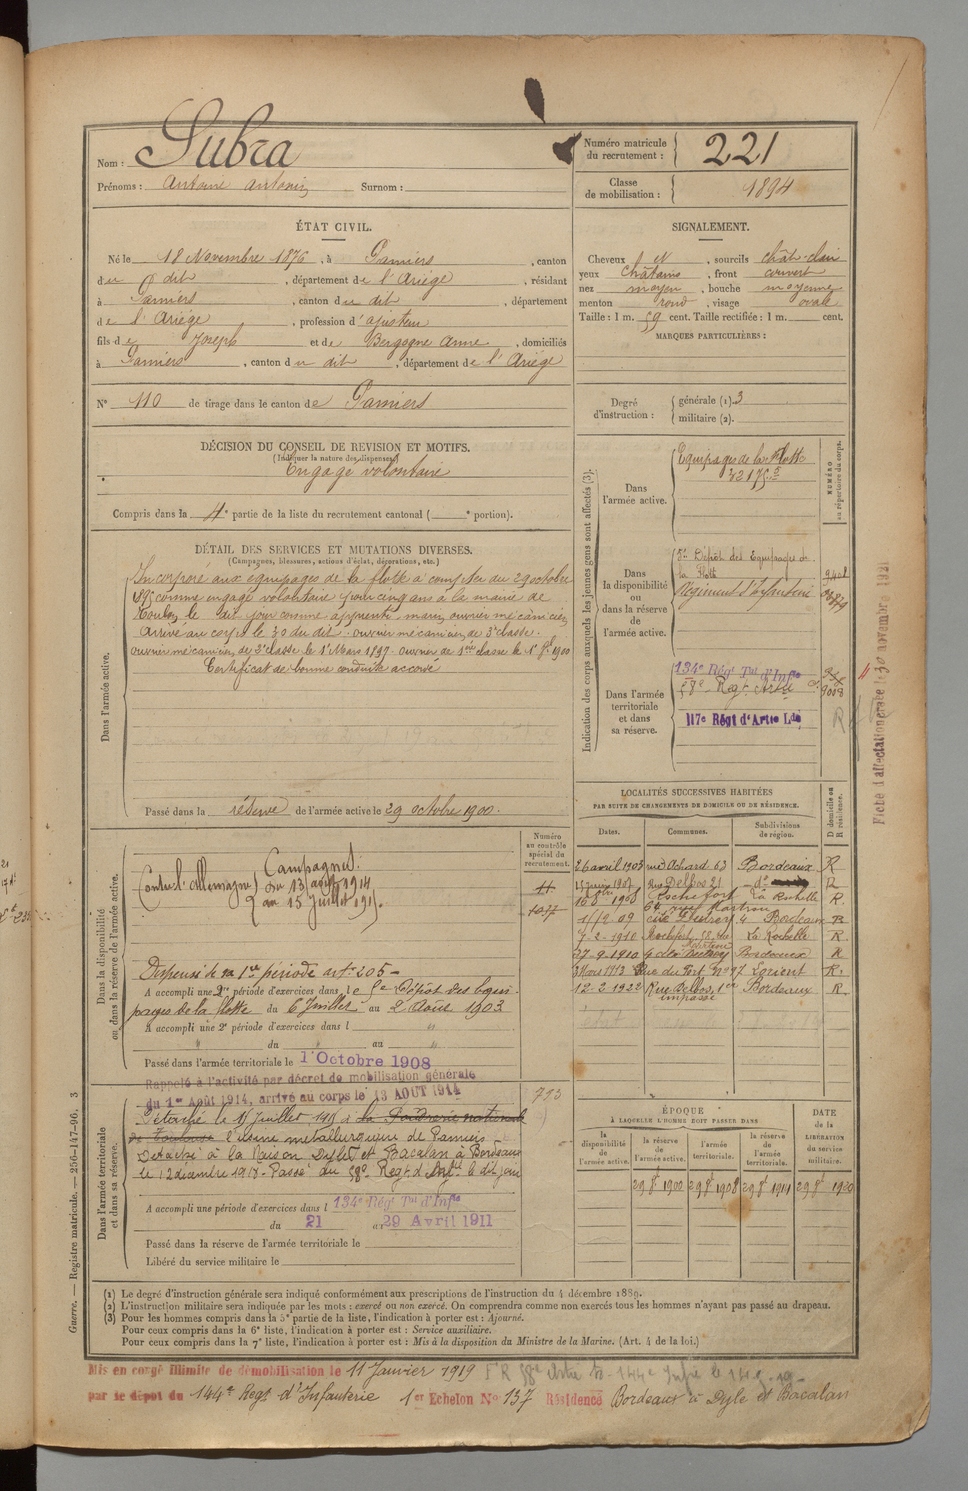 Nom : Subra
Prénoms : Antoine Antonin Surnom :
Numéro matricule du recrutement : 221
Classe de mobilisation : 1894
ÉTAT CIVIL.
Né le 18 Novembre 1876, à Pamiers, canton
du dit, département de l'Ariège, résidant
à Pamiers, canton du dit, département
de l'Ariège, profession d'ajusteur
fils de Joseph et de Bergogne Anne, domiciliés
à Pamiers, canton du dit, département de l'Ariège
N° 110 de tirage dans le canton de Pamiers
SIGNALEMENT.
Cheveux N, sourcils chât-clair
yeux Châtains, front couvert
nez moyen, bouche moyenne
menton rond, visage ovale
Taille : 1 m. 59 cent. Taille rectifiée : 1 m. cent.
MARQUES PARTICULIÈRES :
Degré d'instruction : générale (1). 3
militaire (2).
DÉCISION DU CONSEIL DE REVISION ET MOTIFS.
(Indiquer la nature des dispenses)
Engagé volontaire
Compris dans la 4e partie de la liste du recrutement cantonal ( e portion).
DÉTAIL DES SERVICES ET MUTATIONS DIVERSES.
(Campagnes, blessures, actions d'éclat, décorations, etc.)
Dans l'armée active.
Incorporé aux équipages de la flotte à compter du 29 octobre
comme engagé volontaire pour cinq ans à la mairie de
Toulon le dit jour comme apprenti marin ouvrier mécanicien
Arrivé au corps le 30 du dit. ouvrier mécanicien de 3e classe.
ouvrier mécanicien de 2e classe le 1er Mars 1897. ouvrier de 1ère classe le 1er 1900
Certificat de bonne conduite accordé
Passé dans la réserve de l'armée active le 29 octobre 1900.
Indication des corps auxquels les jeunes gens sont affectés (3).
NUMÉRO au répertoire du corps.
Dans l'armée active.
Equipages de la Flotte
Dans la disponibilité ou dans la réserve de l'armée active.
5e Dépôt des Equipages de
la Flotte
Régiment d'Infanterie
Dans l'armée territoriale et dans sa réserve.
134e Régt Tal d'Infie
58e Regt Artie
9008
117e Régt d'Artie Lde
Fiche d'affectation créée le 30 novembre 1921
LOCALITÉS SUCCESSIVES HABITÉES
PAR SUITE DE CHANGEMENTS DE DOMICILE OU DE RÉSIDENCE.
Dates. Communes. Subdivisions de région. D domicile ou R résidence.
26 avril 1903 rue Achard 63 Bordeaux R
rue Delbos 21 do R
1908 Rochefort La Rochelle R.
1/12 09 4 Bordeaux R
7-2-1910 Rochefort La Rochelle R
27-9-1910 Bordeaux R
3 Mars 1913 Rue du Port n° 97 Lorient R.
12-2-1922 Rue Delbos, 1er Bordeaux R.
impasse
Dans la disponibilité ou dans la réserve de l'armée active.
Numéro au contrôle spécial du recrutement.
Campagnes:
Contre l'Allemagne du 13 août 1914
au 15 Juillet 1915.
1077
Dispensé de sa 1re période art. 205 -
A accompli une 2e période d'exercices dans le 5e Dépôt des Equi-
pages de la flotte du 6 Juillet au 2 Août 1903
A accompli une 2e période d'exercices dans l "
" du " au "
Passé dans l'armée territoriale le 1 Octobre 1908
Dans l'armée territoriale et dans sa réserve.
Rappelé à l'activité par décret de mobilisation générale
du 1er Août 1914, arrivé au corps le 13 AOUT 1914
793
Détaché le 15 juillet 1915 à la Poudrerie nationale
de Toulouse l'usine métallurgique de Pamiers
Détaché à la Maison Dyle et Bacalan à Bordeaux
le 12 décembre 1917. Passé au 58e Regt d'Artie le dit jour
A accompli une période d'exercices dans l 134e Régt Tal d'Infie
du 21 au 29 Avril 1911
Passé dans la réserve de l'armée territoriale le
Libéré du service militaire le
ÉPOQUE
À LAQUELLE L'HOMME DOIT PASSER DANS
DATE de la LIBÉRATION du service militaire.
la disponibilité de l'armée active. la réserve de l'armée active. l'armée territoriale. la réserve de l'armée territoriale.
29 8bre 1900 29 8bre 1908 29 8bre 1914 29 8bre 1920
(1) Le degré d'instruction générale sera indiqué conformément aux prescriptions de l'instruction du 4 décembre 1889.
(2) L'instruction militaire sera indiquée par les mots : exercé ou non exercé. On comprendra comme non exercés tous les hommes n'ayant pas passé au drapeau.
(3) Pour les hommes compris dans la 5e partie de la liste, l'indication à porter est : Ajourné.
Pour ceux compris dans la 6e liste, l'indication à porter est : Service auxiliaire.
Pour ceux compris dans la 7e liste, l'indication à porter est : Mis à la disposition du Ministre de la Marine. (Art. 4 de la loi.)
Guerre. — Registre matricule. — 256-147-96. 3
Mis en congé illimité de démobilisation le 11 Janvier 1919
par le dépôt du 144e Regt d'Infanterie 1er Echelon No 137 Résidence Bordeaux à Dyle et Bacalan